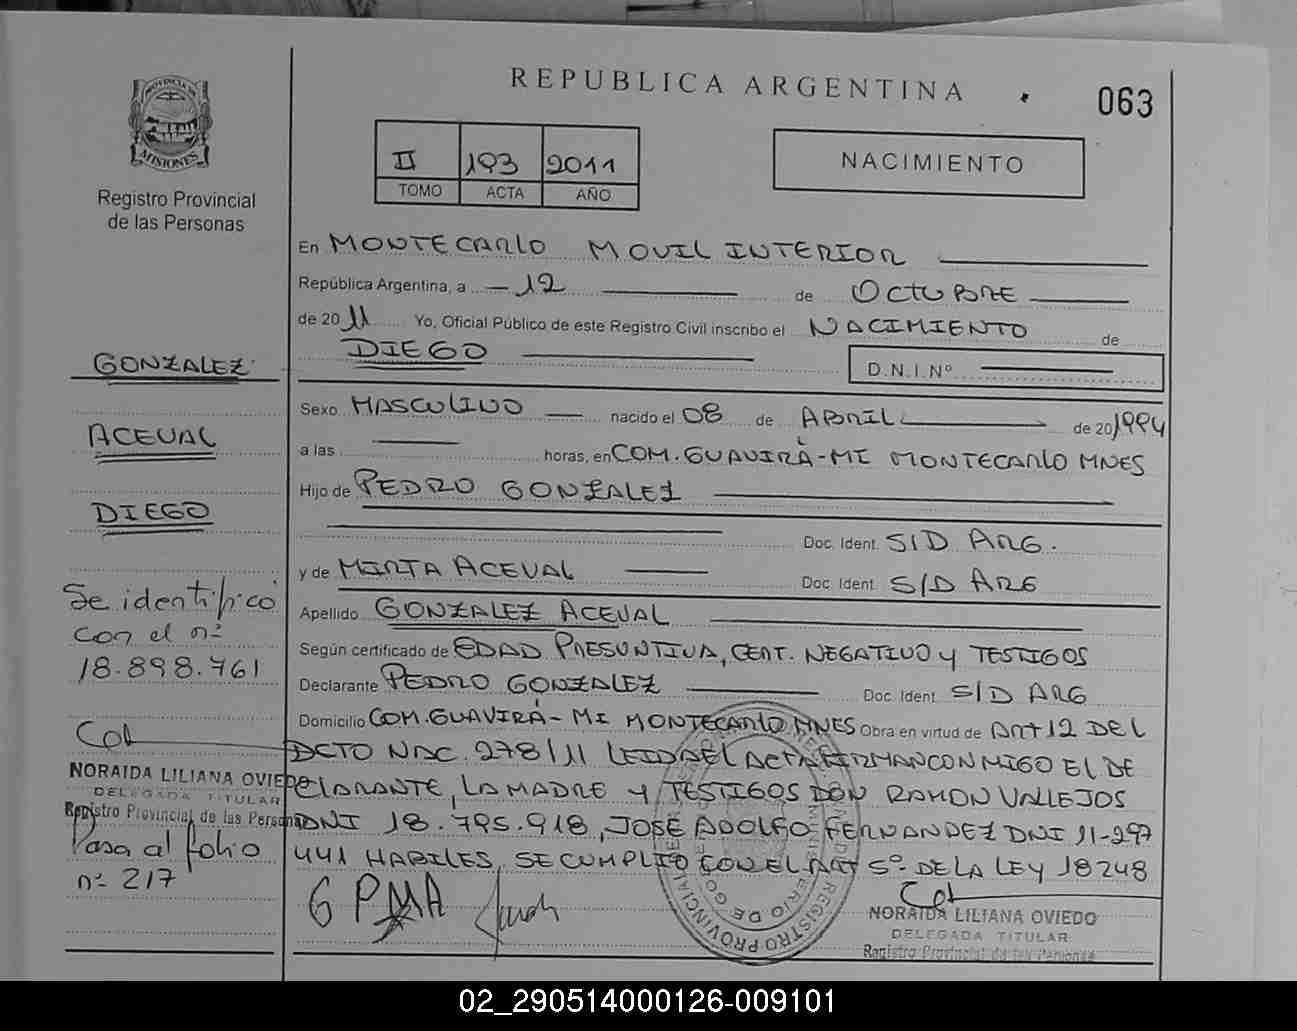 REPUBLICA ARGENTINA
063
PROVINCIA DE
MISIONES
Registro Provincial
de las Personas
II 193 2011
TOMO ACTA AÑO
NACIMIENTO
En MONTECARLO MOVIL INTERIOR
República Argentina, a 12 de OCTUBRE
de 2011 Yo, Oficial Público de este Registro Civil inscribo el NACIMIENTO de
DIEGO
D.N.I.Nº
Sexo MASCULINO nacido el 08 de ABRIL de 20 1994
a las horas, en COM. GUAVIRÁ-MI MONTECARLO MNES
Hijo de PEDRO GONZALEZ
Doc. Ident. S/D ARG.
y de MIRTA ACEVAL Doc. Ident. S/D ARG
Apellido GONZALEZ ACEVAL
Según certificado de EDAD PRESUNTIVA, CERT. NEGATIVO y TESTIGOS
Declarante PEDRO GONZALEZ Doc. Ident. S/D ARG
Domicilio COM. GUAVIRÁ-MI MONTECARLO MNES Obra en virtud de ART 12 DEL
DCTO NAC. 278/11 LEIDA EL ACTA FIRMAN CONMIGO EL DE
CLARANTE, LA MADRE Y TESTIGOS DON RAMON VALLEJOS
DNI 18.795.918, JOSÉ ADOLFO FERNANDEZ DNI 11-297
441 HABILES, SE CUMPLIO CON EL ART 5º DE LA LEY 18248
G PMA
NORAIDA LILIANA OVIEDO
DELEGADA TITULAR
Registro Provincial de las Personas
GONZALEZ
ACEVAL
DIEGO
Se identificó
con el nº
18.898.761
NORAIDA LILIANA OVIEDO
DELEGADA TITULAR
Registro Provincial de las Personas
Pasa al folio
nº 217
02_290514000126-009101